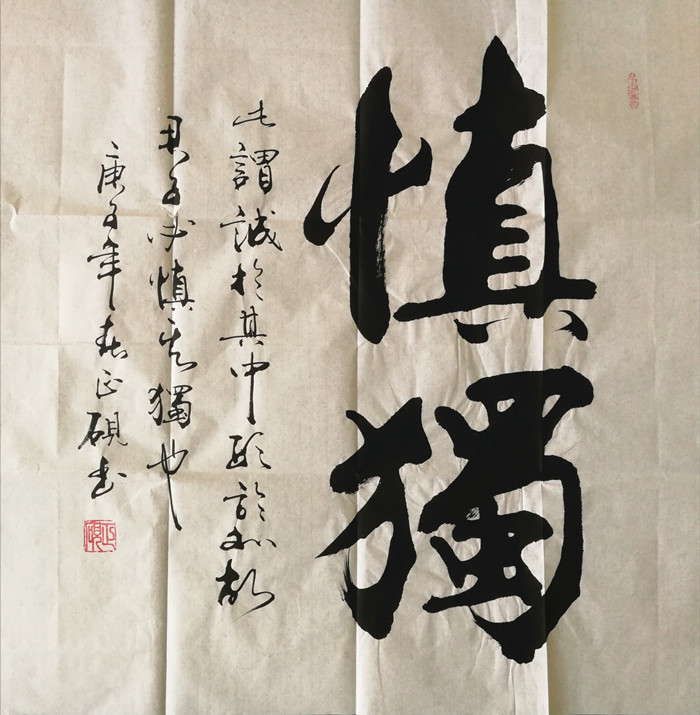 慎獨
此謂誠於其中形於外故
君子必慎其獨也
庚子年春正硯書